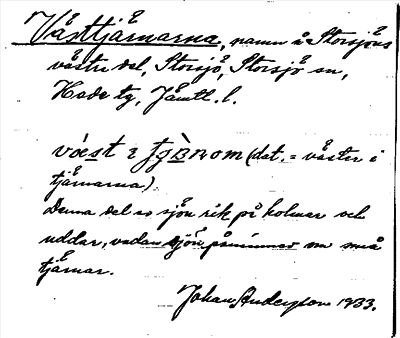 Västtjärnarna, namn å Storsjöns
västra del, Storsjö, Storsjö sn,
Hede tg, Jämtl. l.
(dat. = väster i
tjärnarna).
Denna del av sjön rik på holmar och
uddar, vadan sjön påminner om små
tjärnar.
Johan Anderson 1933.